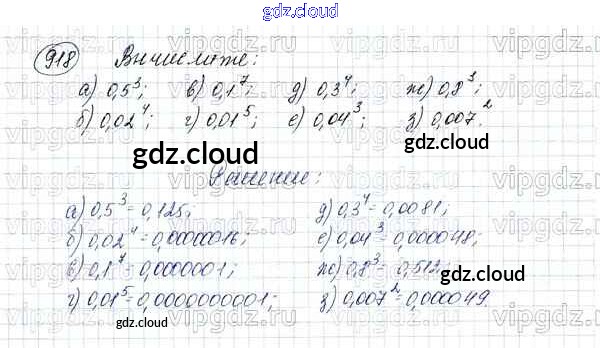 gdz.cloud
918 Вычислите:
а) 0,5³; в) 0,1⁷; д) 0,3⁴; ж) 0,8³;
б) 0,02⁴; г) 0,01⁵; е) 0,04³; з) 0,007².
gdz.cloud
gdz.cloud
Решение:
а) 0,5³=0,125; д) 0,3⁴=0,0081;
б) 0,02⁴=0,00000016; е) 0,04³=0,000048;
в) 0,1⁷=0,0000001; ж) 0,8³=0,512;
gdz.cloud
г) 0,01⁵=0,0000000001; з) 0,007²=0,000049.
gdz.cloud
gdz.cloud